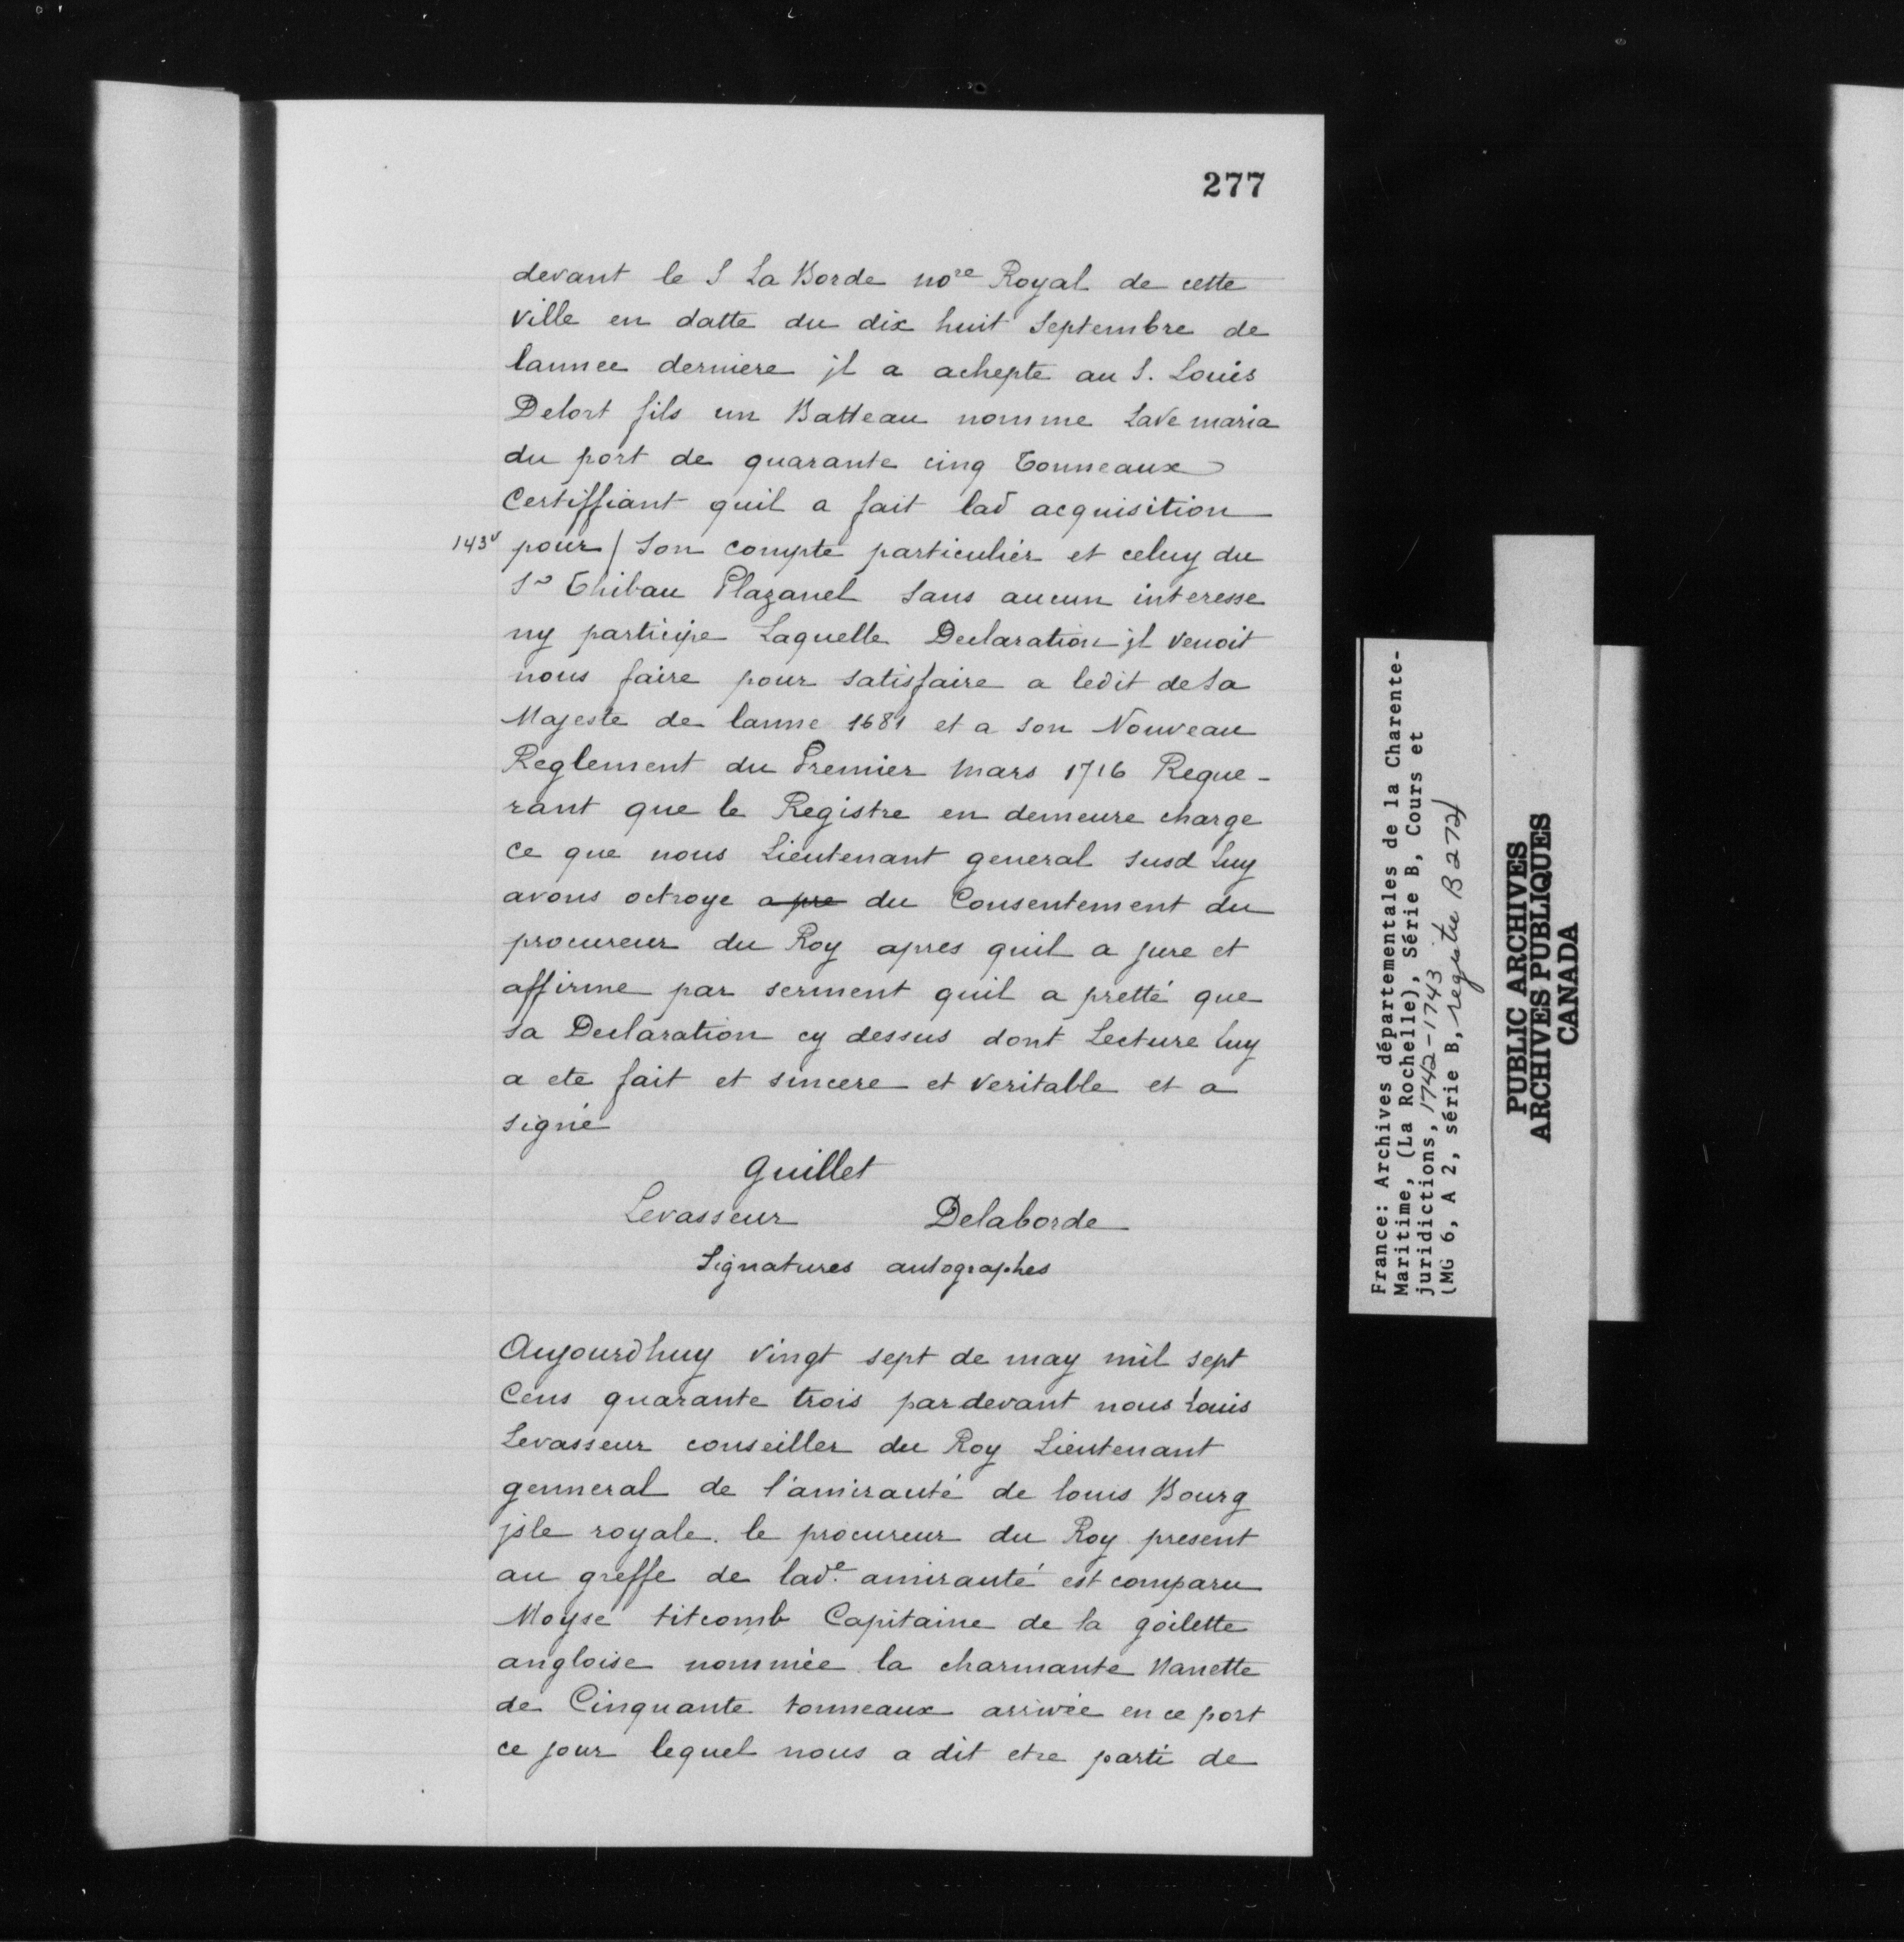 277
devant le S La Borde nore Royal de cette
ville en datte du dix huit Septembre de
lannee derniere jl a achepte au S. Louis
Delort fils un Batteau nomme Lave maria
du port de quarante cinq Tonneaux
Certiffiant quil a fait lad acquisition
143v pour / Son compte particulier et celuy du
Sr Thibau Plazanel Sans aucun interesse
ny participe Laquelle Declaration jl venoit
nous faire pour Satisfaire a ledit de Sa
Majeste de lanne 1681 et a son Nouveau
Reglement du Premier mars 1716 Reque-
rant que le Registre en demeure charge
ce que nous Lieutenant general susd luy
avons octroye apre du Consentement du
procureur du Roy apres quil a jure et
affirme par serment quil a pretté que
sa Declaration cy dessus dont Lecture luy
a ete fait et sincere et veritable et a
signé
Guillet
Levasseur Delaborde
Signatures autographes
Aujourdhuy vingt sept de may mil sept
Cens quarante trois pardevant nous Louis
Levasseur conseiller du Roy Lieutenant
genneral de l'amirauté de louis Bourg
jsle royale. le procureur du Roy present
au greffe de lade. amirauté est comparu
Moyse titcomb Capitaine de la goilette
angloise nommée la charmante Nanette
de Cinquante tonneaux arrivée en ce port
ce jour lequel nous a dit etre parti de
France: Archives départementales de la Charente-
Maritime, (La Rochelle), Série B, Cours et
juridictions, 1742-1743
(MG 6, A 2, série B, registre B 272)
PUBLIC ARCHIVES
ARCHIVES PUBLIQUES
CANADA